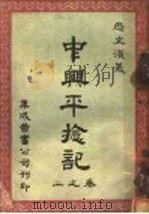 歷史演義
中興平捻記
卷之二
集成圖書公司刊印